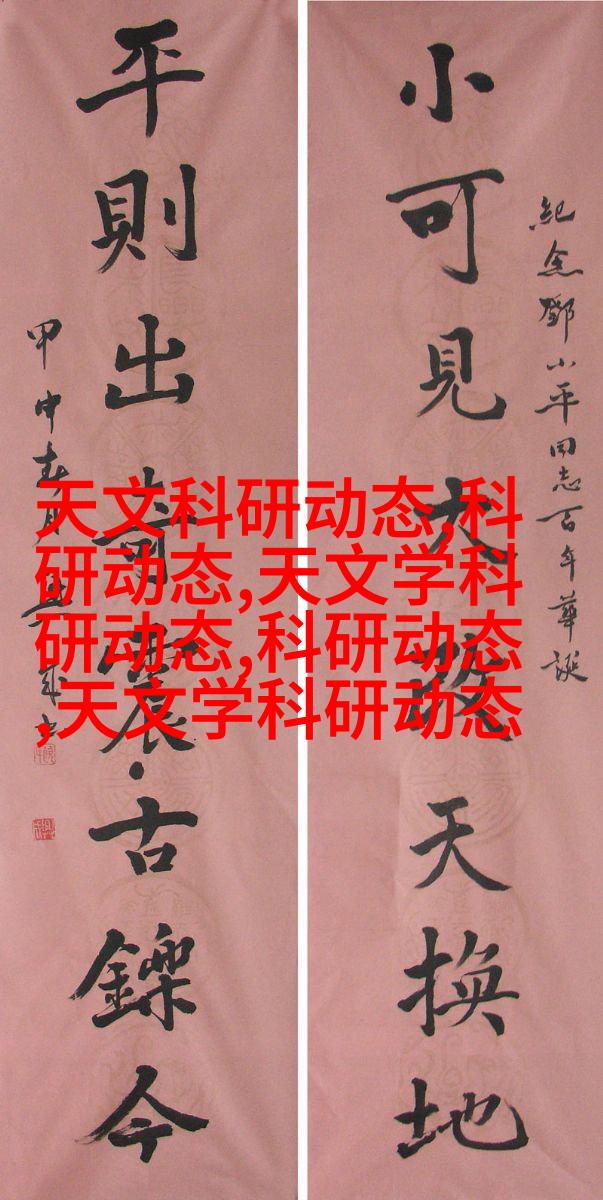 紀念鄧小平同志百年華誕
小可見大改天換地
平則出奇震古鑠今
甲申春月
天文科研动态,科
研动态,天文学科
研动态,科研动态
,天文学科研动态